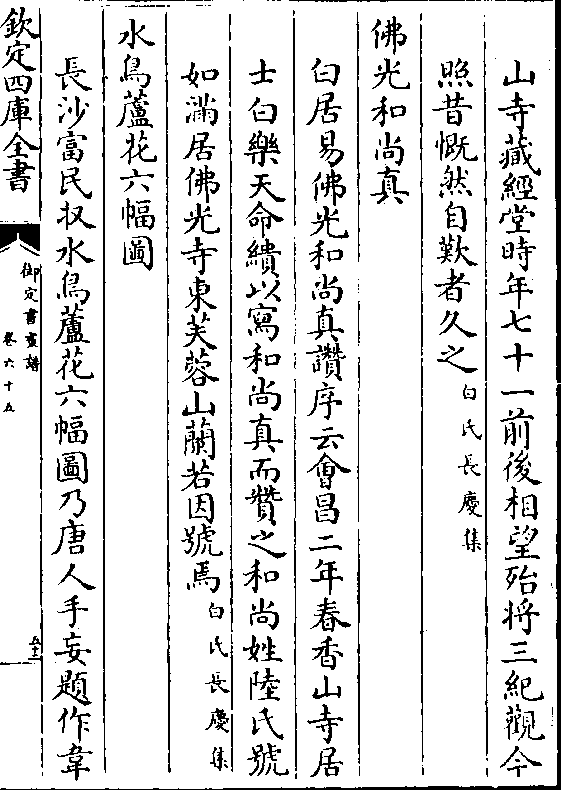 山寺藏經堂時年七十一前後相望殆将三紀觀今
照昔慨然自歎者久之白氏長慶集
佛光和尚真
白居易佛光和尚真讚序云會昌二年春香山寺居
士白樂天命繢以寫和尚真而贊之和尚姓陸氏號
如滿居佛光寺東芙蓉山蘭若因號焉白氏長慶集
水鳥蘆花六幅圖
長沙富民収水鳥蘆花六幅圖乃唐人手妄題作韋
欽定四庫全書
御定書畫譜
卷六十五